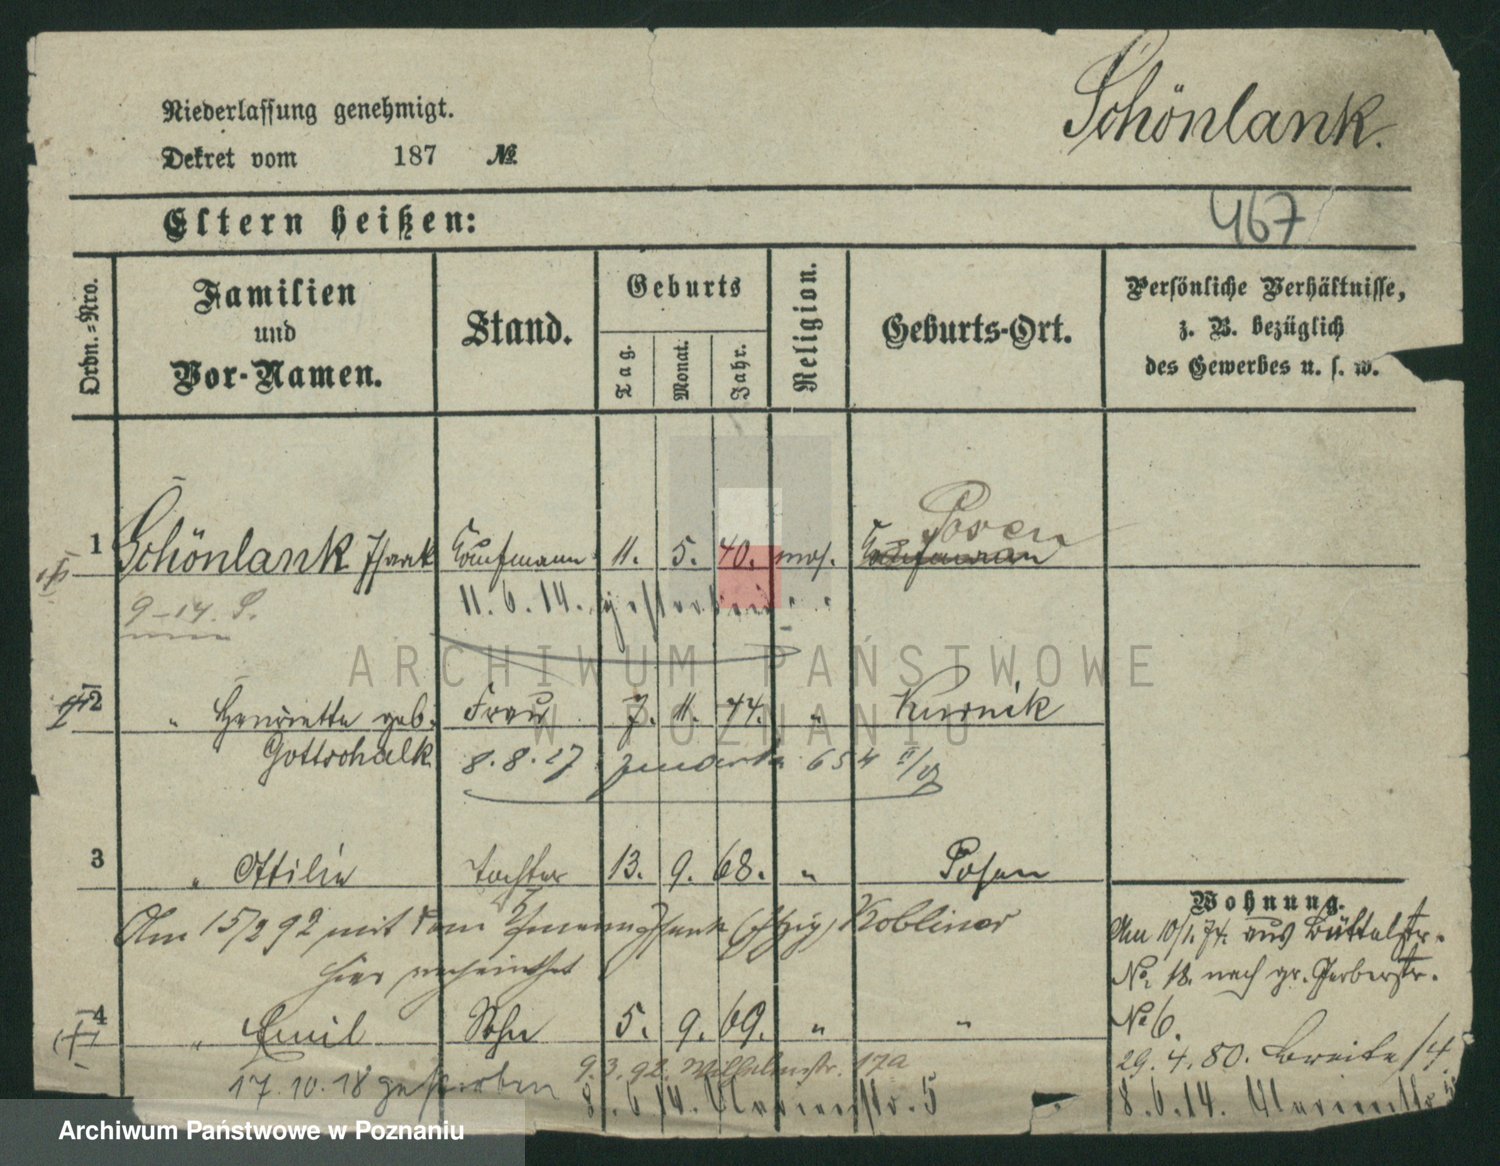 Schönlank.
Niederlassung genehmigt.
Dekret vom 187 №
467
Eltern heißen:
Ordn.=Nro.
Familien
und
Vor-Namen.
Stand.
Geburts
Tag.
Monat.
Jahr.
Religion.
Geburts-Ort.
Persönliche Verhältnisse,
z. B. bezüglich
des Gewerbes u. s. w.
Posen
1 Schönlank Isaak Kaufmann 11. 5. 40. mos. Kaufmann
9-14. S.
11. 6. 14. gestorben.
2 " Henriette geb. Frau 7. 11. 44. " Kurnik
Gottschalk
8. 8. 27 654
3 " Ottilie Tochter 13. 9. 68. " Posen
Am 15/2 92 mit dem Isaak Kobliner
hier verheirathet
4 " Emil Sohn 5. 9. 69. " "
17. 10. 18 gestorben
9. 3. 92. Wilhelmstr. 17a
8. 6. 14. Marienstr. 5
Wohnung.
Am 10/1. 74. aus Büttelstr.
No. 18. nach gr. Gerberstr.
No 6.
29. 4. 80. Breite 14.
8. 6. 14. Marienstr. 5
ARCHIWUM PAŃSTWOWE
W POZNANIU
Archiwum Państwowe w Poznaniu